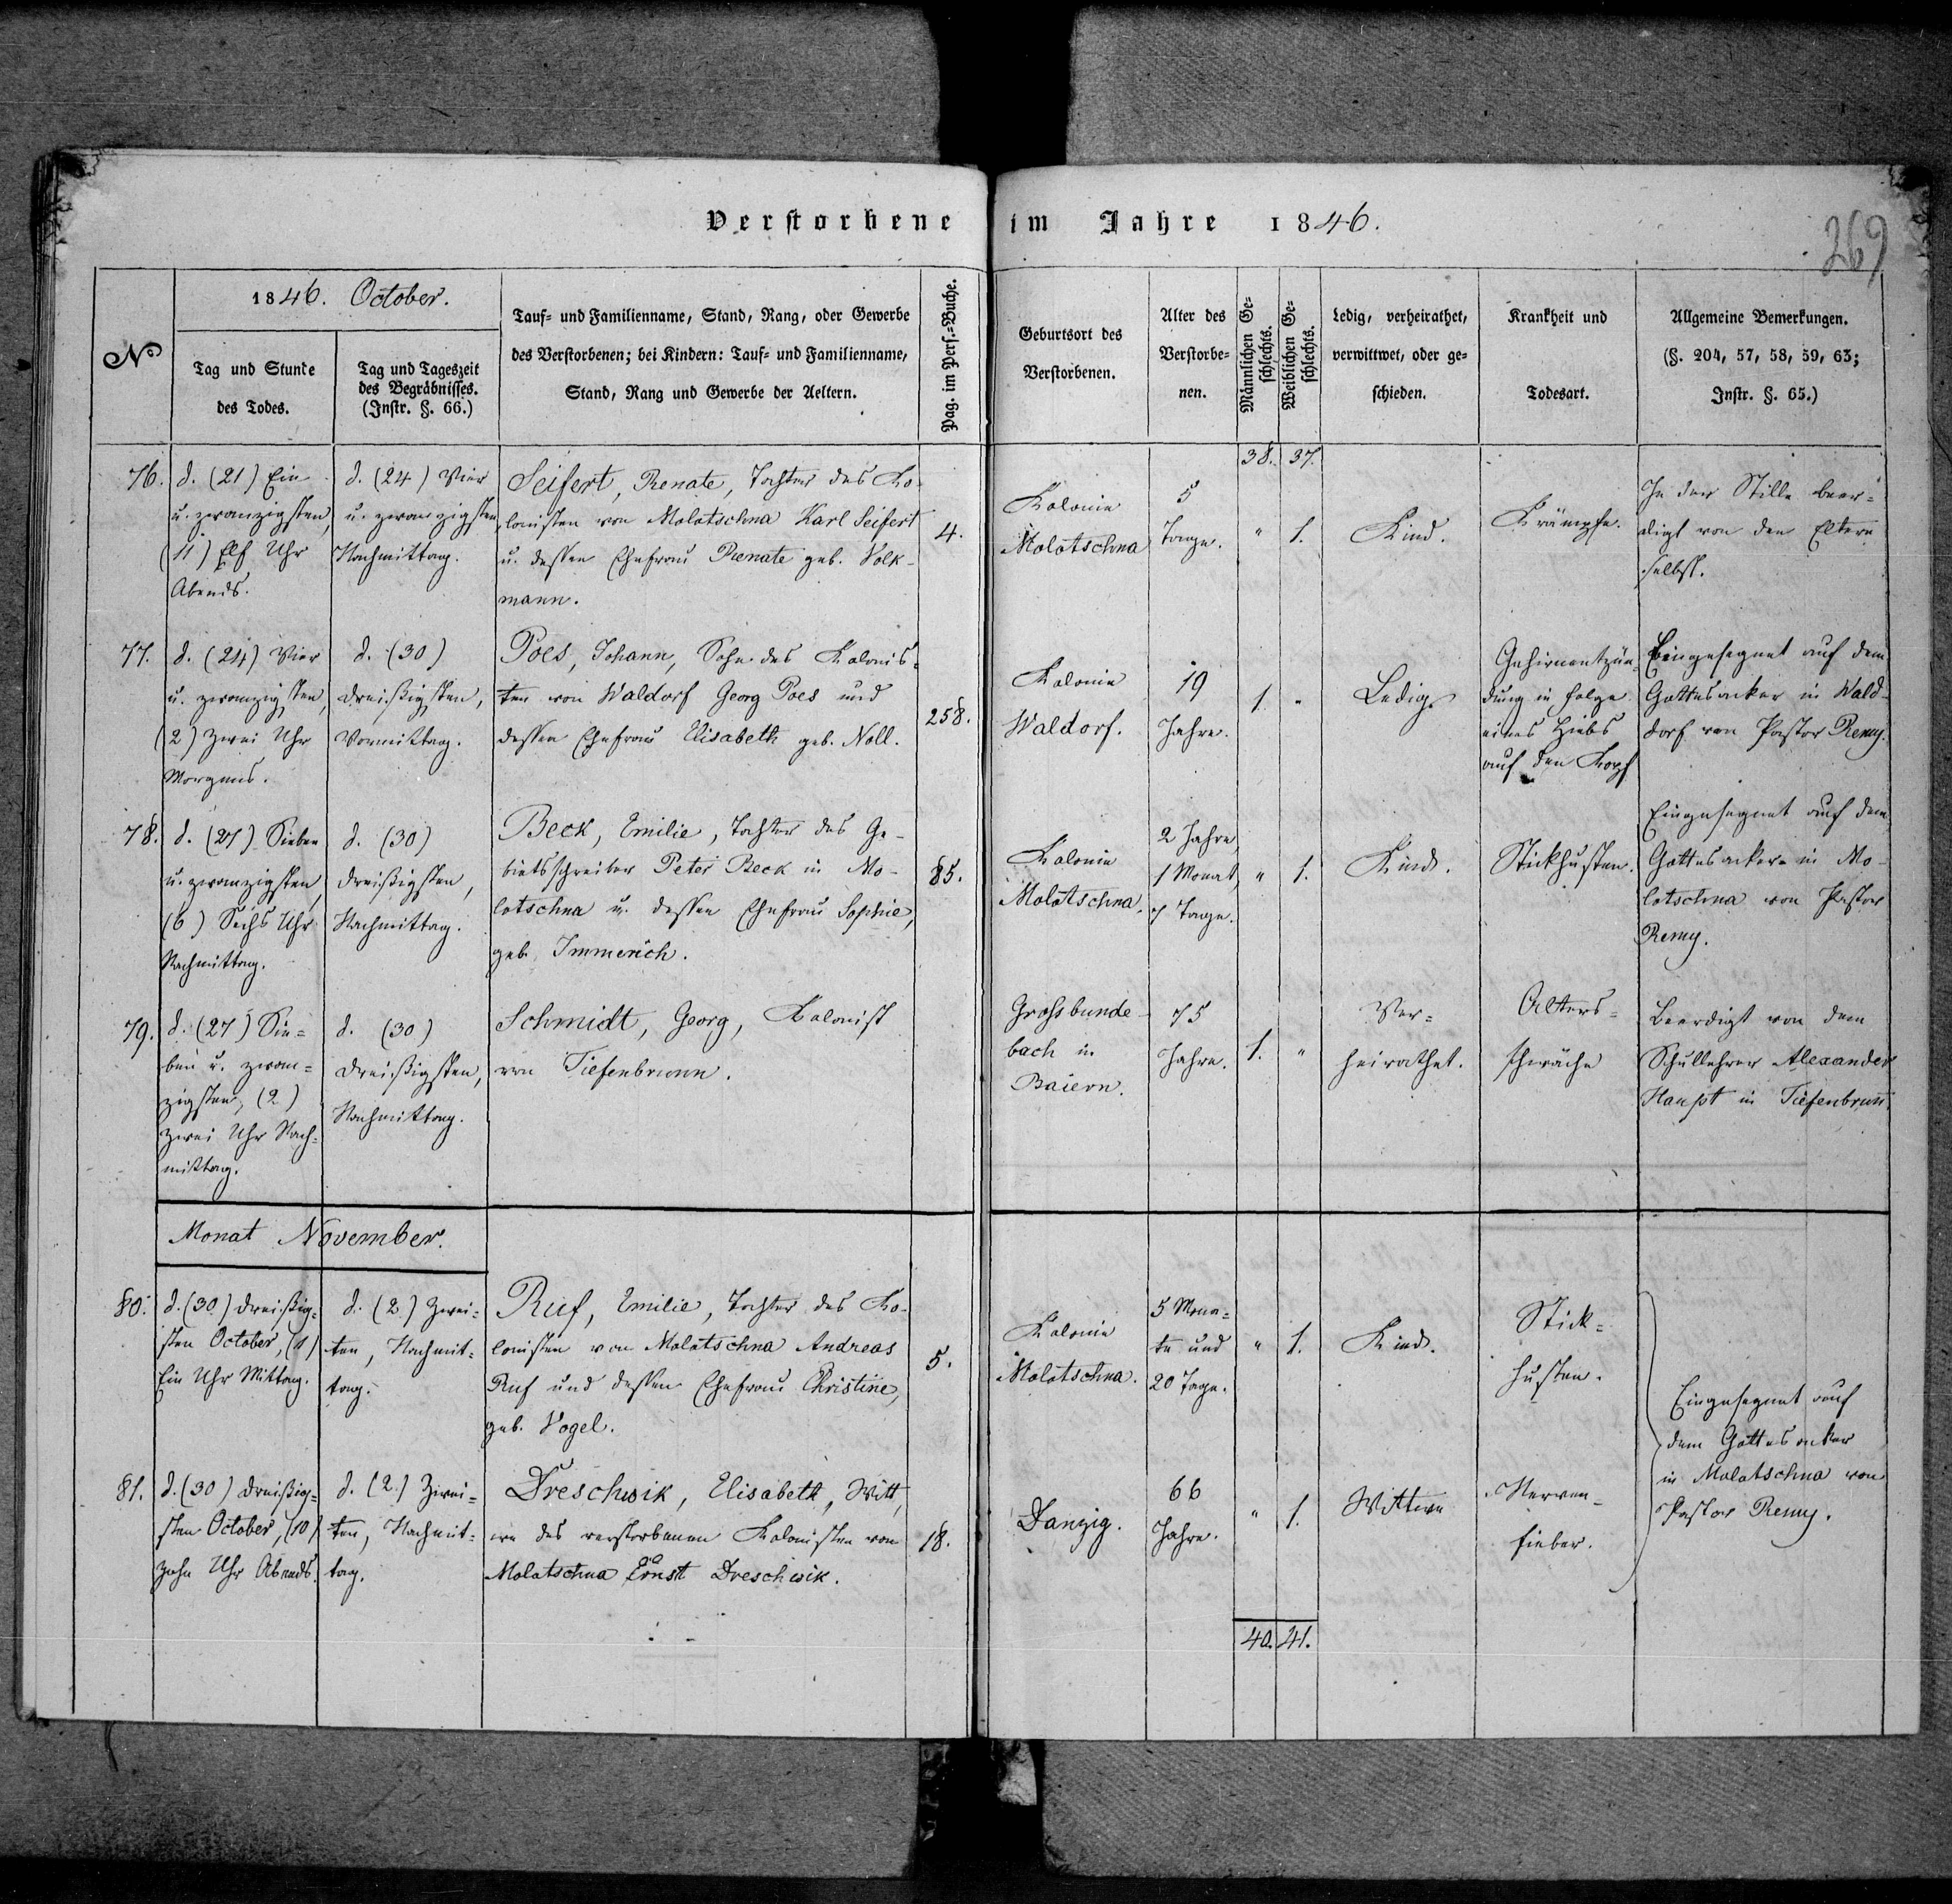 Verstorbene im Jahre 1846.
269
No
1846. October.
Tag und Stunde
des Todes.
Tag und Tageszeit
des Begräbnisses.
(Instr. §. 66.)
Tauf= und Familienname, Stand, Rang, oder Gewerbe
des Verstorbenen; bei Kindern: Tauf= und Familienname,
Stand, Rang und Gewerbe der Aeltern.
Pag. im Pers.=Buche.
Geburtsort des
Verstorbenen.
Alter des
Verstorbe=
nen.
Männlichen Ge=
schlechts.
Weiblichen Ge=
schlechts.
Ledig, verheirathet,
verwittwet, oder ge=
schieden.
Krankheit und
Todesart.
Allgemeine Bemerkungen.
(§. 204, 57, 58, 59, 63;
Instr. §. 65.)
38. 37.
76.
d. (21) Ein
u. zwanzigsten,
(11) Elf Uhr
Abends.
d. (24) Vier
u. zwanzigsten,
Nachmittag.
Seifert, Renate, Tochter des Ko-
lonisten von Molotschna Karl Seifert
u. dessen Ehefrau Renate geb. Volk-
mann.
4.
Kolonie
Molotschna
5
Tage.
" 1.
Kind.
Krämpfe.
In der Stille beer=
digt von den Eltern
selbst.
77.
d. (24) Vier
u. zwanzigsten,
(2) Zwei Uhr
Morgens.
d. (30)
dreißigsten,
Vormittag.
Poes, Johann, Sohn des Kolonis=
ten von Waldorf Georg Poes und
dessen Ehefrau Elisabeth geb. Noll.
258.
Kolonie
Waldorf.
19
Jahre.
1. "
Ledig.
Gehirnentzün=
dung in Folge
eines Hiebs
auf den Kopf
Eingesegnet auf dem
Gottesacker in Wald-
dorf von Pastor Remy.
78.
d. (27) Sieben
u. zwanzigsten,
(6) Sechs Uhr
Nachmittag.
d. (30)
dreißigsten,
Nachmittag.
Beck, Emilie, Tochter des Ge-
bietsschreiber Peter Beck in Mo-
lotschna u. dessen Ehefrau Sophie,
geb. Immerich.
85.
Kolonie
Molotschna.
2 Jahre,
1 Monat,
7 Tage.
" 1.
Kind.
Stickhusten.
Eingesegnet auf dem
Gottesacker in Mo-
lotschna von Pastor
Remy.
79.
d. (27) Sie=
ben u. zwan=
zigsten, (2)
zwei Uhr Nach=
mittag.
d. (30)
dreißigsten,
Nachmittag.
Schmidt, Georg, Kolonist
von Tiefenbrunn.
Grossbunde-
bach in
Baiern.
75
Jahre.
1. "
Ver=
heirathet.
Alters=
schwäche
Beerdigt von dem
Schullehrer Alexander
Haupt in Tiefenbrunn.
Monat November.
80.
d. (30) dreißig=
sten October, (1)
Ein Uhr Mittag.
d. (2) Zwei=
ten, Nachmit=
tag.
Ruf, Emilie, Tochter des Ko-
lonisten von Molotschna Andreas
Ruf und dessen Ehefrau Christine,
geb. Vogel.
5.
Kolonie
Molotschna.
5 Mona=
te und
20 Tage.
" 1.
Kind.
Stick=
husten.
Eingesegnet auf
dem Gottesacker
in Molotschna von
Pastor Remy.
81.
d. (30) dreißig=
sten October, (10)
zehn Uhr Abends.
d. (2.) Zwei=
ten, Nachmit=
tag.
Dreschwik, Elisabeth, Witt,
we des verstorbenen Kolonisten von
Molotschna Ernst Dreschwik.
18.
Danzig.
66
Jahre.
" 1.
Wittwe
Nerven-
fieber.
40. 41.